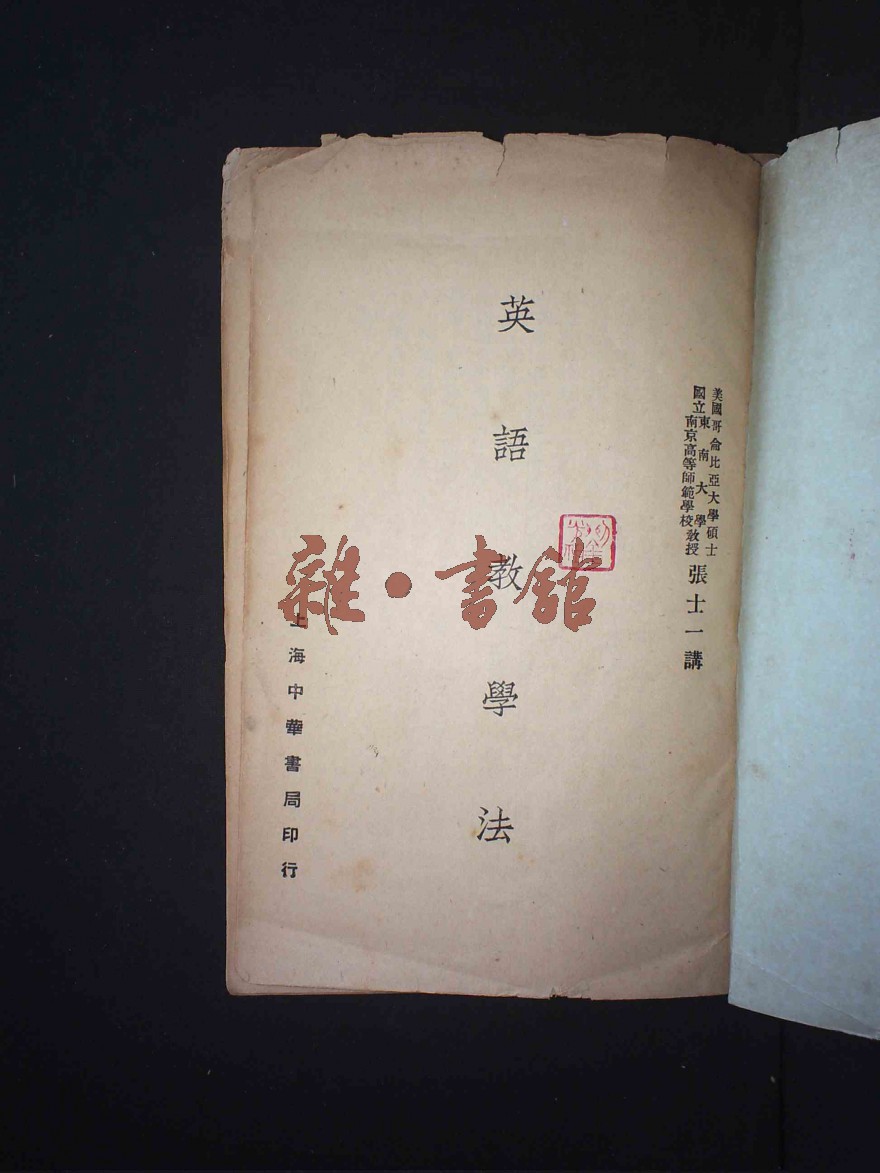 美國哥倫比亞大學碩士
國立東南大學
南京高等師範學校教授
張士一講
英語教學法
上海中華書局印行
雜·書館